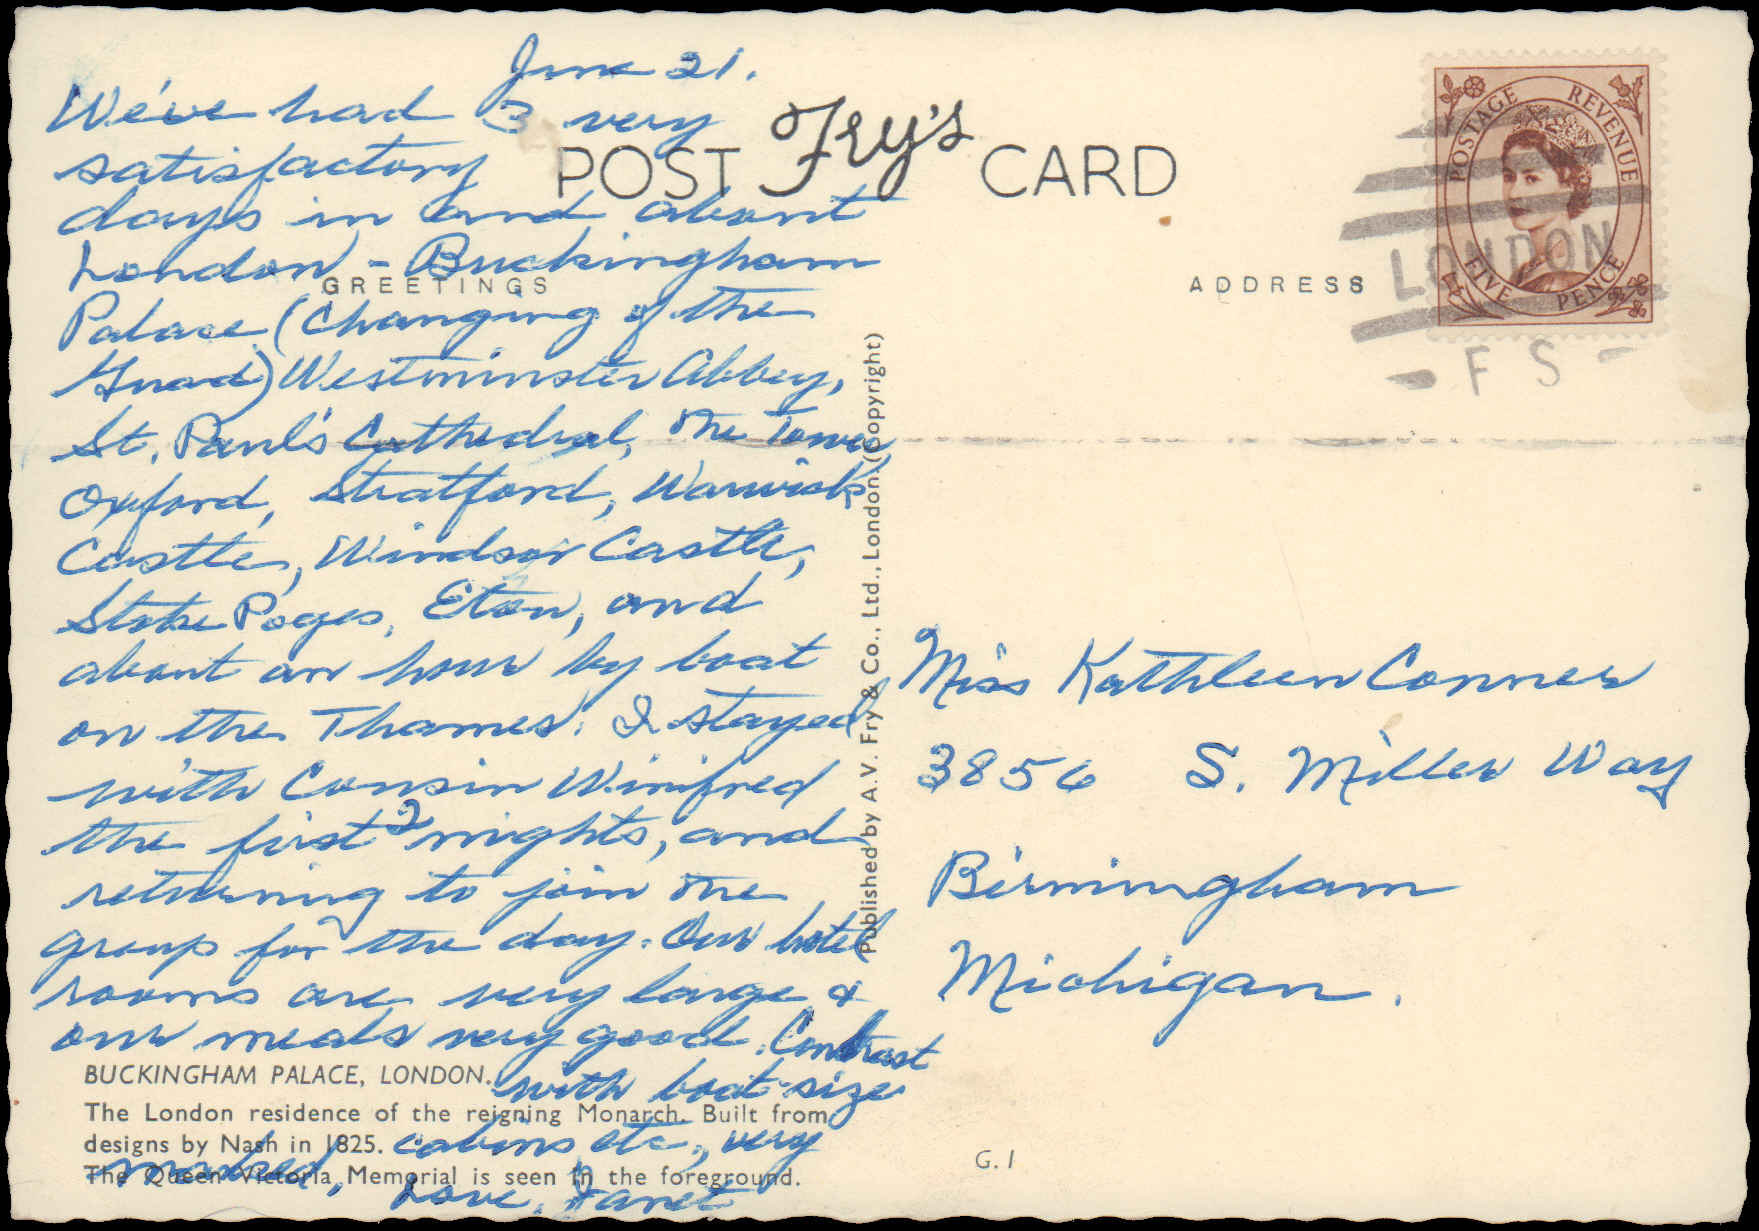 June 21.
We've had 3 very
satisfactory
days in and about
London - Buckingham
Palace (Changing of the
Guard) Westminster Abbey,
St. Paul's Cathedral, The Tower,
Oxford, Stratford, Warwick
Castle, Windsor Castle,
Stoke Poges, Eton, and
about an hour by boat
on the Thames. I stayed
with Cousin Winifred
the first 2 nights, and
returning to join the
group for the day. Our hotel
rooms are very large &
our meals very good. Contrast
with boat-size
cabins etc., very
marked, Love, Janet
POST Fry's CARD
GREETINGS
ADDRESS
POSTAGE REVENUE
FIVE PENCE
LONDON
- F S -
Published by A.V. Fry & Co., Ltd., London. (Copyright)
Miss Kathleen Conner
3856 S. Miller Way
Birmingham
Michigan.
BUCKINGHAM PALACE, LONDON.
The London residence of the reigning Monarch. Built from
designs by Nash in 1825.
The Queen Victoria Memorial is seen in the foreground.
G.1